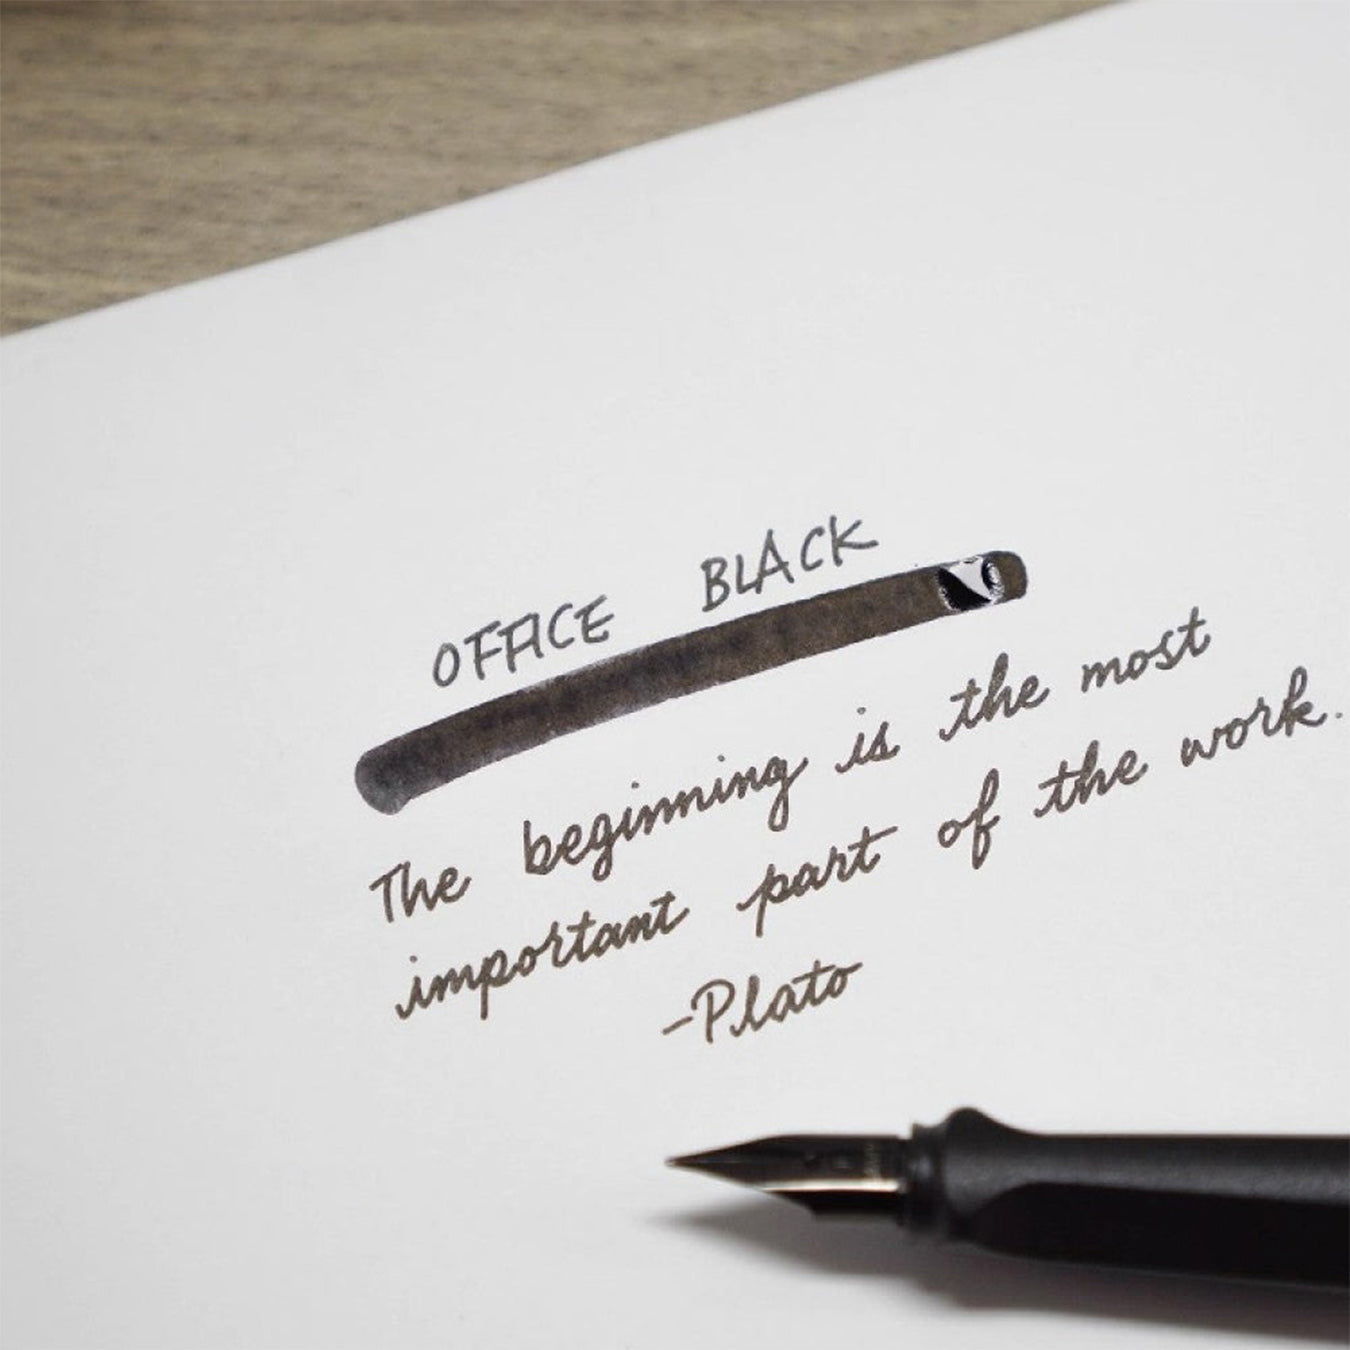 OFFICE BLACK
The beginning is the most
important part of the work.
-Plato